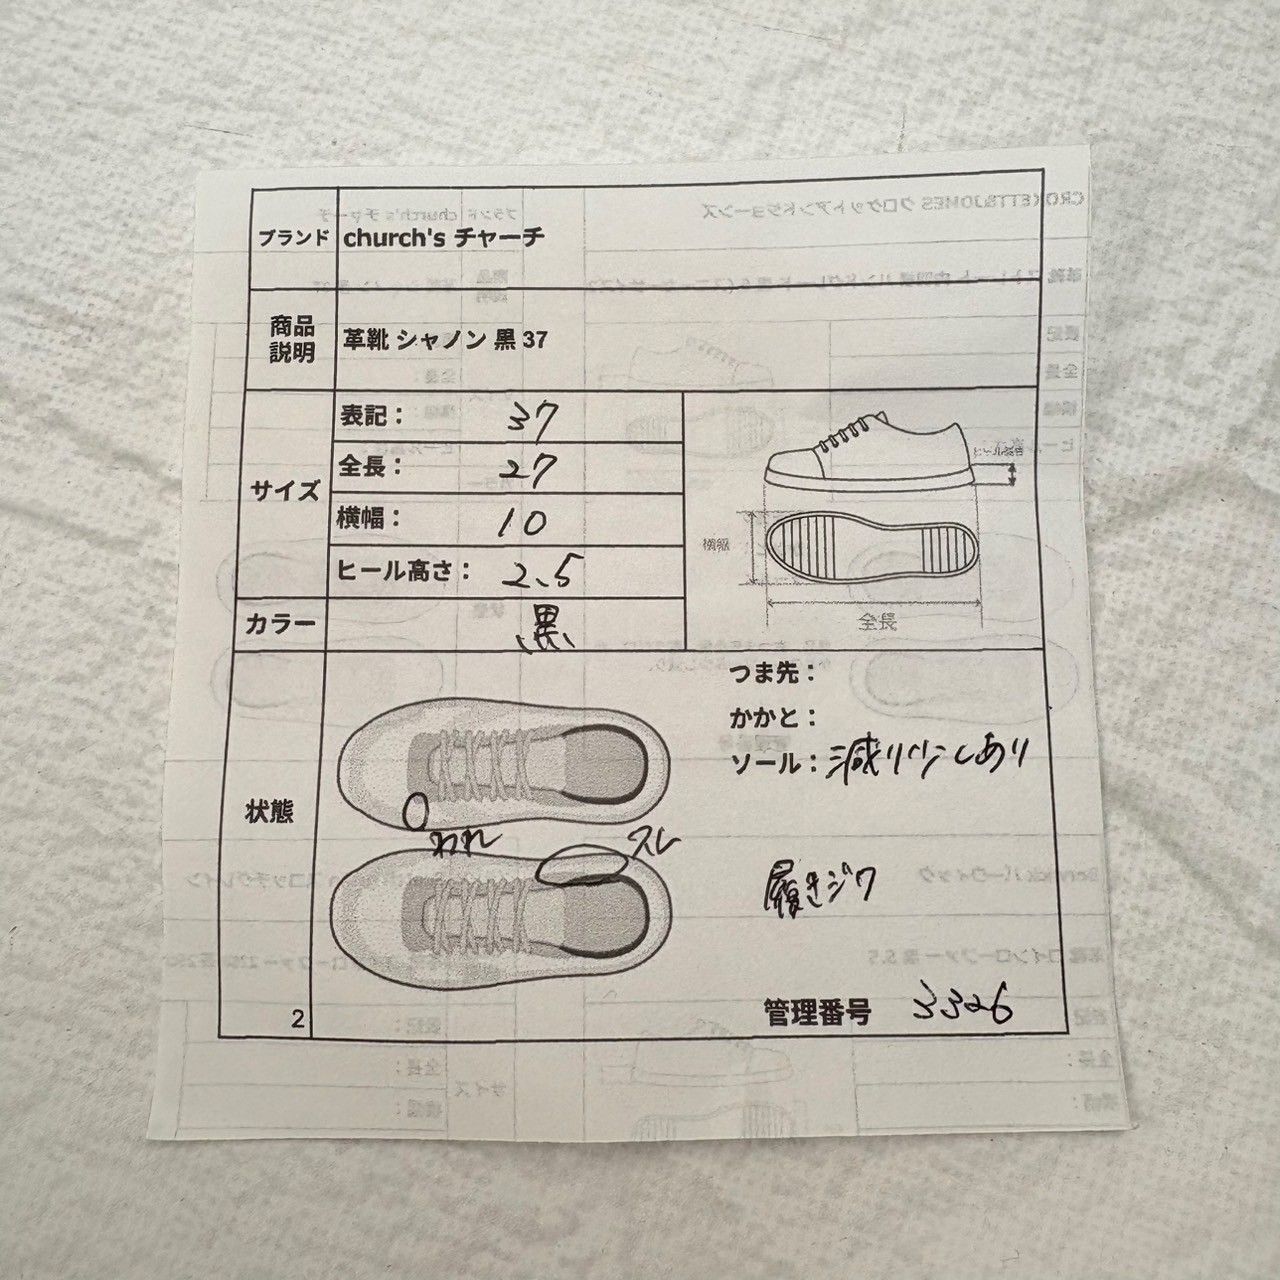 ブランド church's チャーチ
商品説明 革靴 シャノン 黒 37
サイズ
表記： 37
全長： 27
横幅： 10
ヒール高さ： 2.5
横幅
全長
カラー 黒
状態
つま先：
かかと：
ソール： 減り少しあり
われ
スレ
履きジワ
2
管理番号 3326